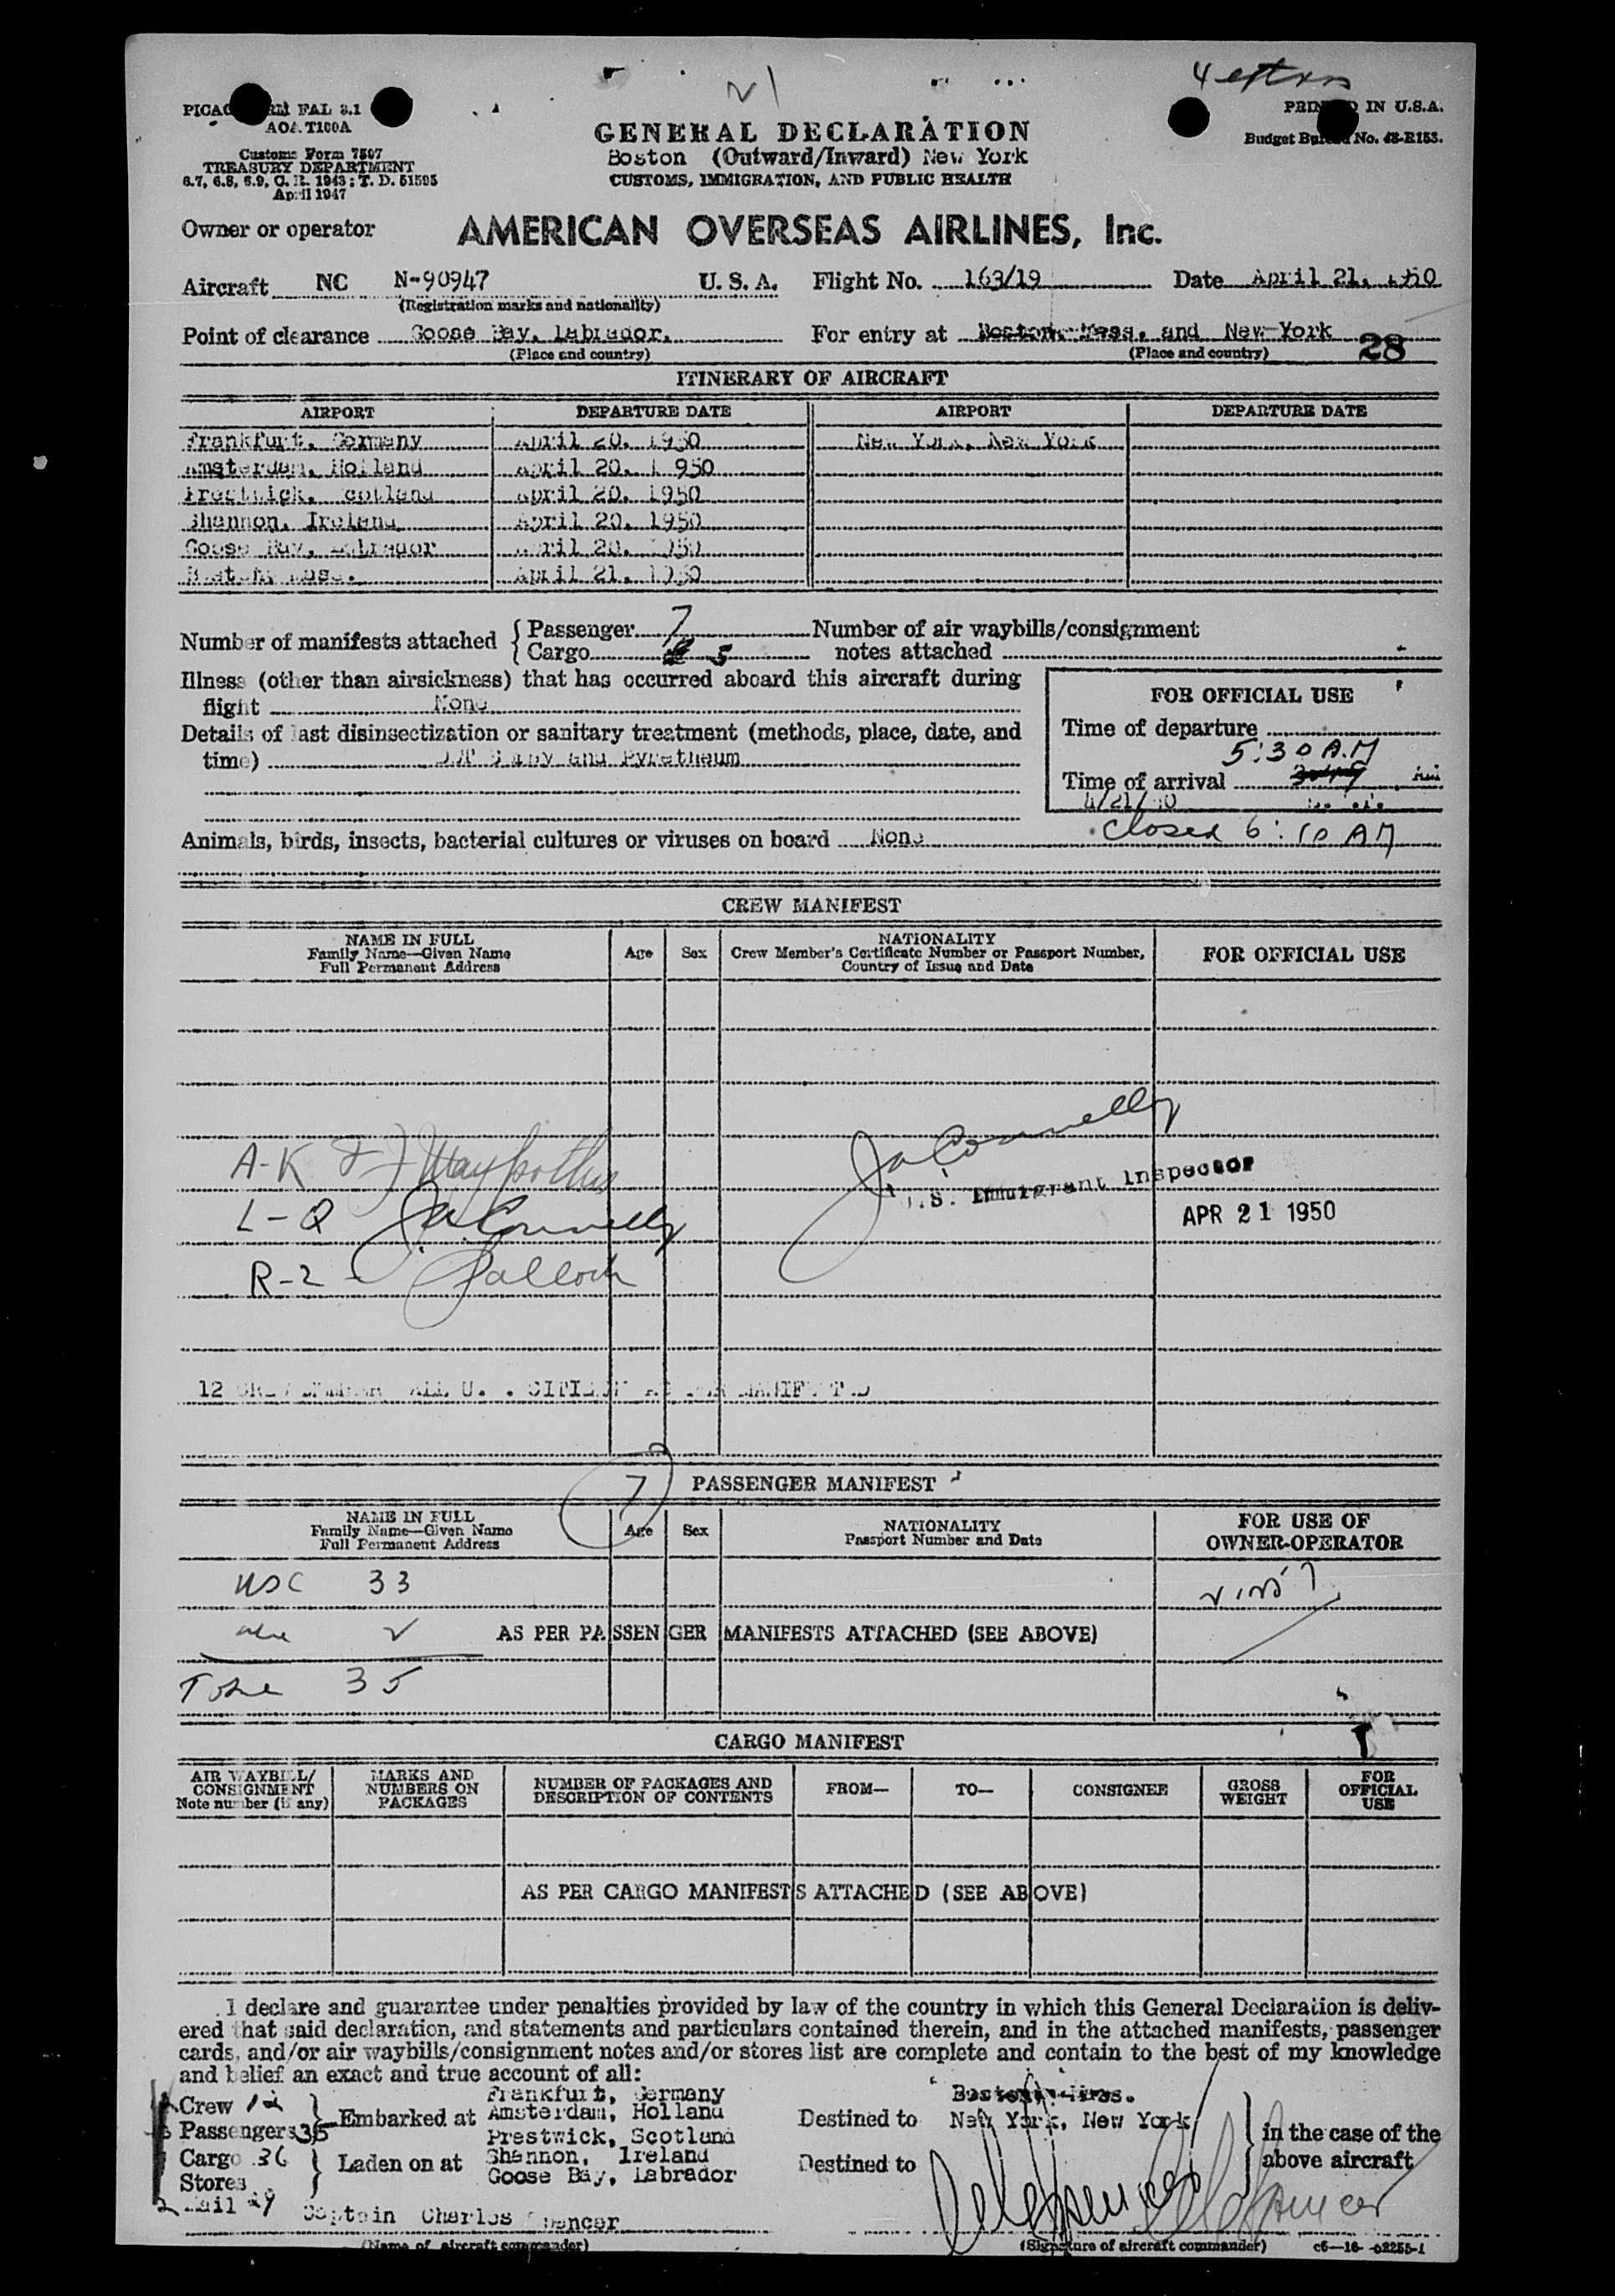 4 extra
PICAO FAL 3.1
AOA T100A
PRINTED IN U.S.A.
Customs Form 7507
TREASURY DEPARTMENT
6.7, 6.8, 6.9, C. R. 1943; T. D. 51595
April 1947
Budget Bureau No. 48-R153.
GENERAL DECLARATION
Boston (Outward/Inward) New York
CUSTOMS, IMMIGRATION, AND PUBLIC HEALTH
Owner or operator AMERICAN OVERSEAS AIRLINES, Inc.
Aircraft NC N-90947 U. S. A. Flight No. 163/19 Date April 21, 1950
(Registration marks and nationality)
Point of clearance Goose Bay, Labrador. For entry at Boston, Mass. and New York 28
(Place and country) (Place and country)
ITINERARY OF AIRCRAFT
AIRPORT DEPARTURE DATE AIRPORT DEPARTURE DATE
Frankfurt, Germany April 20, 1950 New York, New York
Amsterdam, Holland April 20, 1950
Prestwick, Scotland April 20, 1950
Shannon, Ireland April 20, 1950
Goose Bay, Labrador April 20, 1950
Boston, Mass. April 21, 1950
Number of manifests attached { Passenger 7 Number of air waybills/consignment
Cargo 5 notes attached
Illness (other than airsickness) that has occurred aboard this aircraft during
flight None
Details of last disinsectization or sanitary treatment (methods, place, date, and
time) and Pyretheum
FOR OFFICIAL USE
Time of departure
5:30 A.M
Time of arrival
4/21/50
Closed 6:10 AM
Animals, birds, insects, bacterial cultures or viruses on board None
CREW MANIFEST
NAME IN FULL
Family Name—Given Name
Full Permanent Address
Age Sex
NATIONALITY
Crew Member's Certificate Number or Passport Number,
Country of Issue and Date
FOR OFFICIAL USE
A-K
J A Connelly
U.S. Immigrant Inspector
APR 21 1950
L-Q J.A. Connelly
R-2 -
12 CREW ALL U. CITIZEN MANIFESTED
7
PASSENGER MANIFEST
NAME IN FULL
Family Name—Given Name
Full Permanent Address
Age Sex
NATIONALITY
Passport Number and Date
FOR USE OF
OWNER-OPERATOR
USC 33
AS PER PASSENGER MANIFESTS ATTACHED (SEE ABOVE)
35
CARGO MANIFEST
AIR WAYBILL/
CONSIGNMENT
Note number (if any)
MARKS AND
NUMBERS ON
PACKAGES
NUMBER OF PACKAGES AND
DESCRIPTION OF CONTENTS
FROM— TO— CONSIGNEE
GROSS
WEIGHT
FOR
OFFICIAL
USE
AS PER CARGO MANIFESTS ATTACHED (SEE ABOVE)
I declare and guarantee under penalties provided by law of the country in which this General Declaration is deliv-
ered that said declaration, and statements and particulars contained therein, and in the attached manifests, passenger
cards, and/or air waybills/consignment notes and/or stores list are complete and contain to the best of my knowledge
and belief an exact and true account of all:
Crew 12
Passengers 35
Embarked at
Frankfurt, Germany
Amsterdam, Holland
Prestwick, Scotland
Destined to
Boston, Mass.
New York, New York
in the case of the
above aircraft
Cargo 36
Stores
Laden on at
Shannon, Ireland
Goose Bay, Labrador
Destined to
Mail 29
Captain Charles Spencer
(Name of aircraft commander) (Signature of aircraft commander) c6—16—62255-1